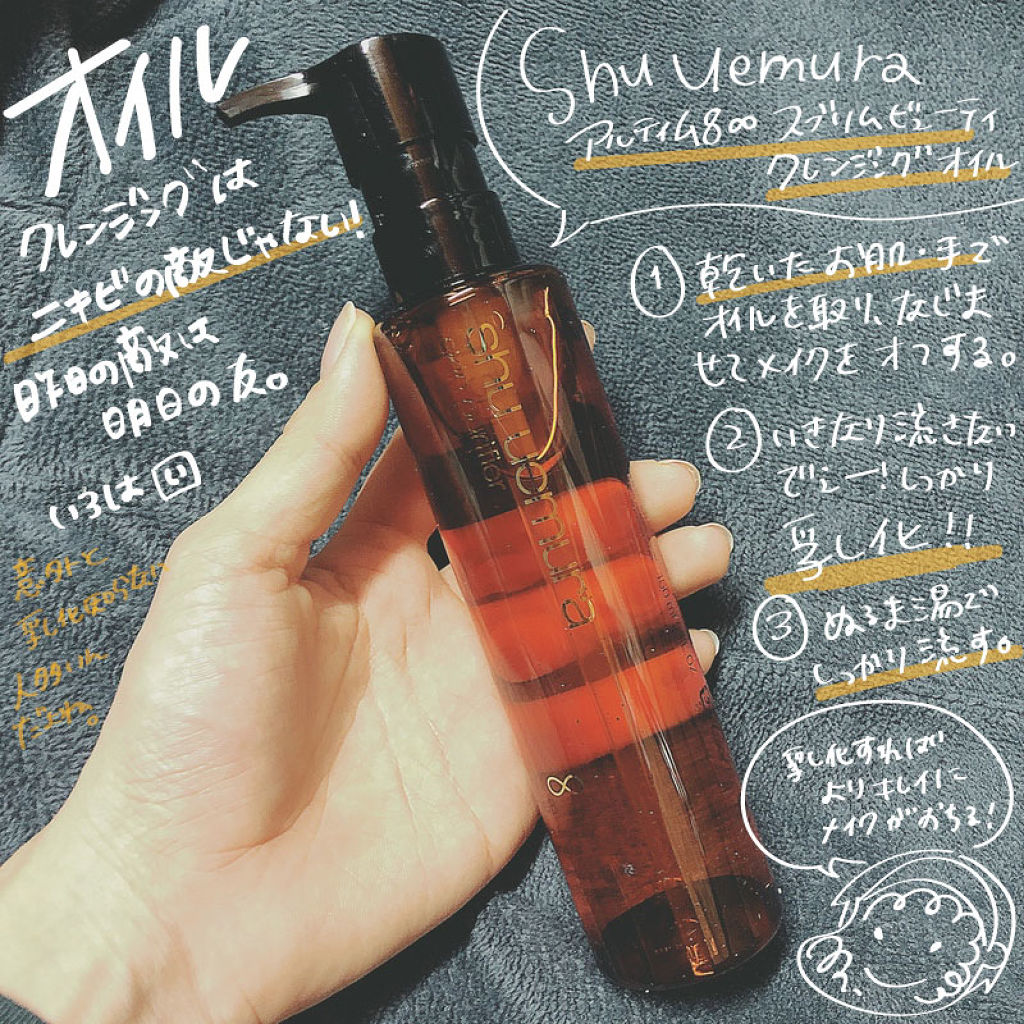 オイル
クレンジングは
ニキビの敵じゃない!
昨日の敵は
明日の友。
いろは
意外と
乳化知らない
人多いん
だよね。
Shu uemura
アルティム8∞ スブリムビューティ
クレンジングオイル
① 乾いたお肌・手で
オイルを取り、なじま
せてメイクをオフする。
② いきなり流さない
でェー!しっかり
乳化!!
③ ぬるま湯で
しっかり流す。
乳化すれば
よりキレイに
メイクがおちる!
shu uemura
8